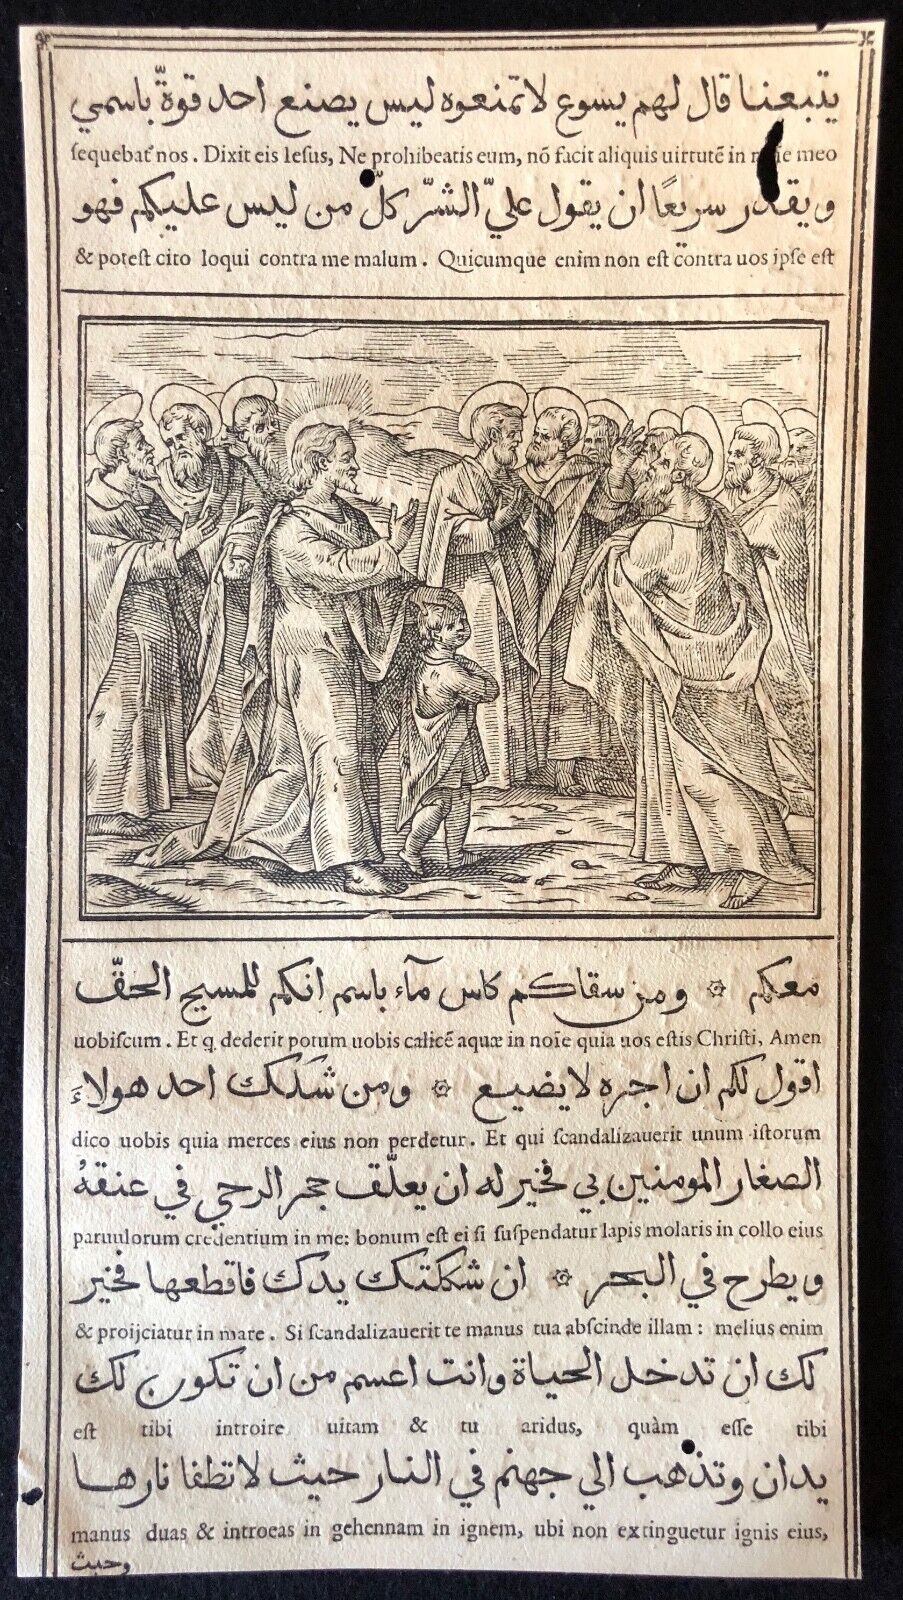 يتبعنا قال لهم يسوع لا تمنعوه ليس يصنع احد قوةّ باسمي
sequebat᷑ nos . Dixit eis Iesus, Ne prohibeatis eum, nō facit aliquis uirtutē in meo
ويقدر سريعًا ان يقول عليّ الشرّ كلّ من ليس عليكم فهو
& potest cito loqui contra me malum . Quicumque enim non est contra uos ipse est
معكم ۞ ومن سقاكم كاس مآء باسم انكم للمسيح الحقّ
uobiscum . Et q dederit potum uobis calicē aquæ in noīe quia uos estis Christi, Amen
اقول لكم ان اجره لا يضيع ۞ ومن شكك احد هولاءَ
dico uobis quia merces eius non perdetur . Et qui scandalizauerit unum istorum
الصغار المومنين بي فخير له ان يعلّق حجر الرحي في عنقهُ
paruulorum credentium in me: bonum est ei si suspendatur lapis molaris in collo eius
ويطرح في البحر ۞ ان شككتك يدك فاقطعها فخير
& proijciatur in mare . Si scandalizauerit te manus tua abscinde illam : melius enim
لك ان تدخل الحياة وانت اعسم من ان تكون لك
est tibi introire uitam & tu aridus, quàm esse tibi
يدان وتذهب الي جهنم في النار حيث لا تطفا نارها
manus duas & introeas in gehennam in ignem, ubi non extinguetur ignis eius,
وحيث